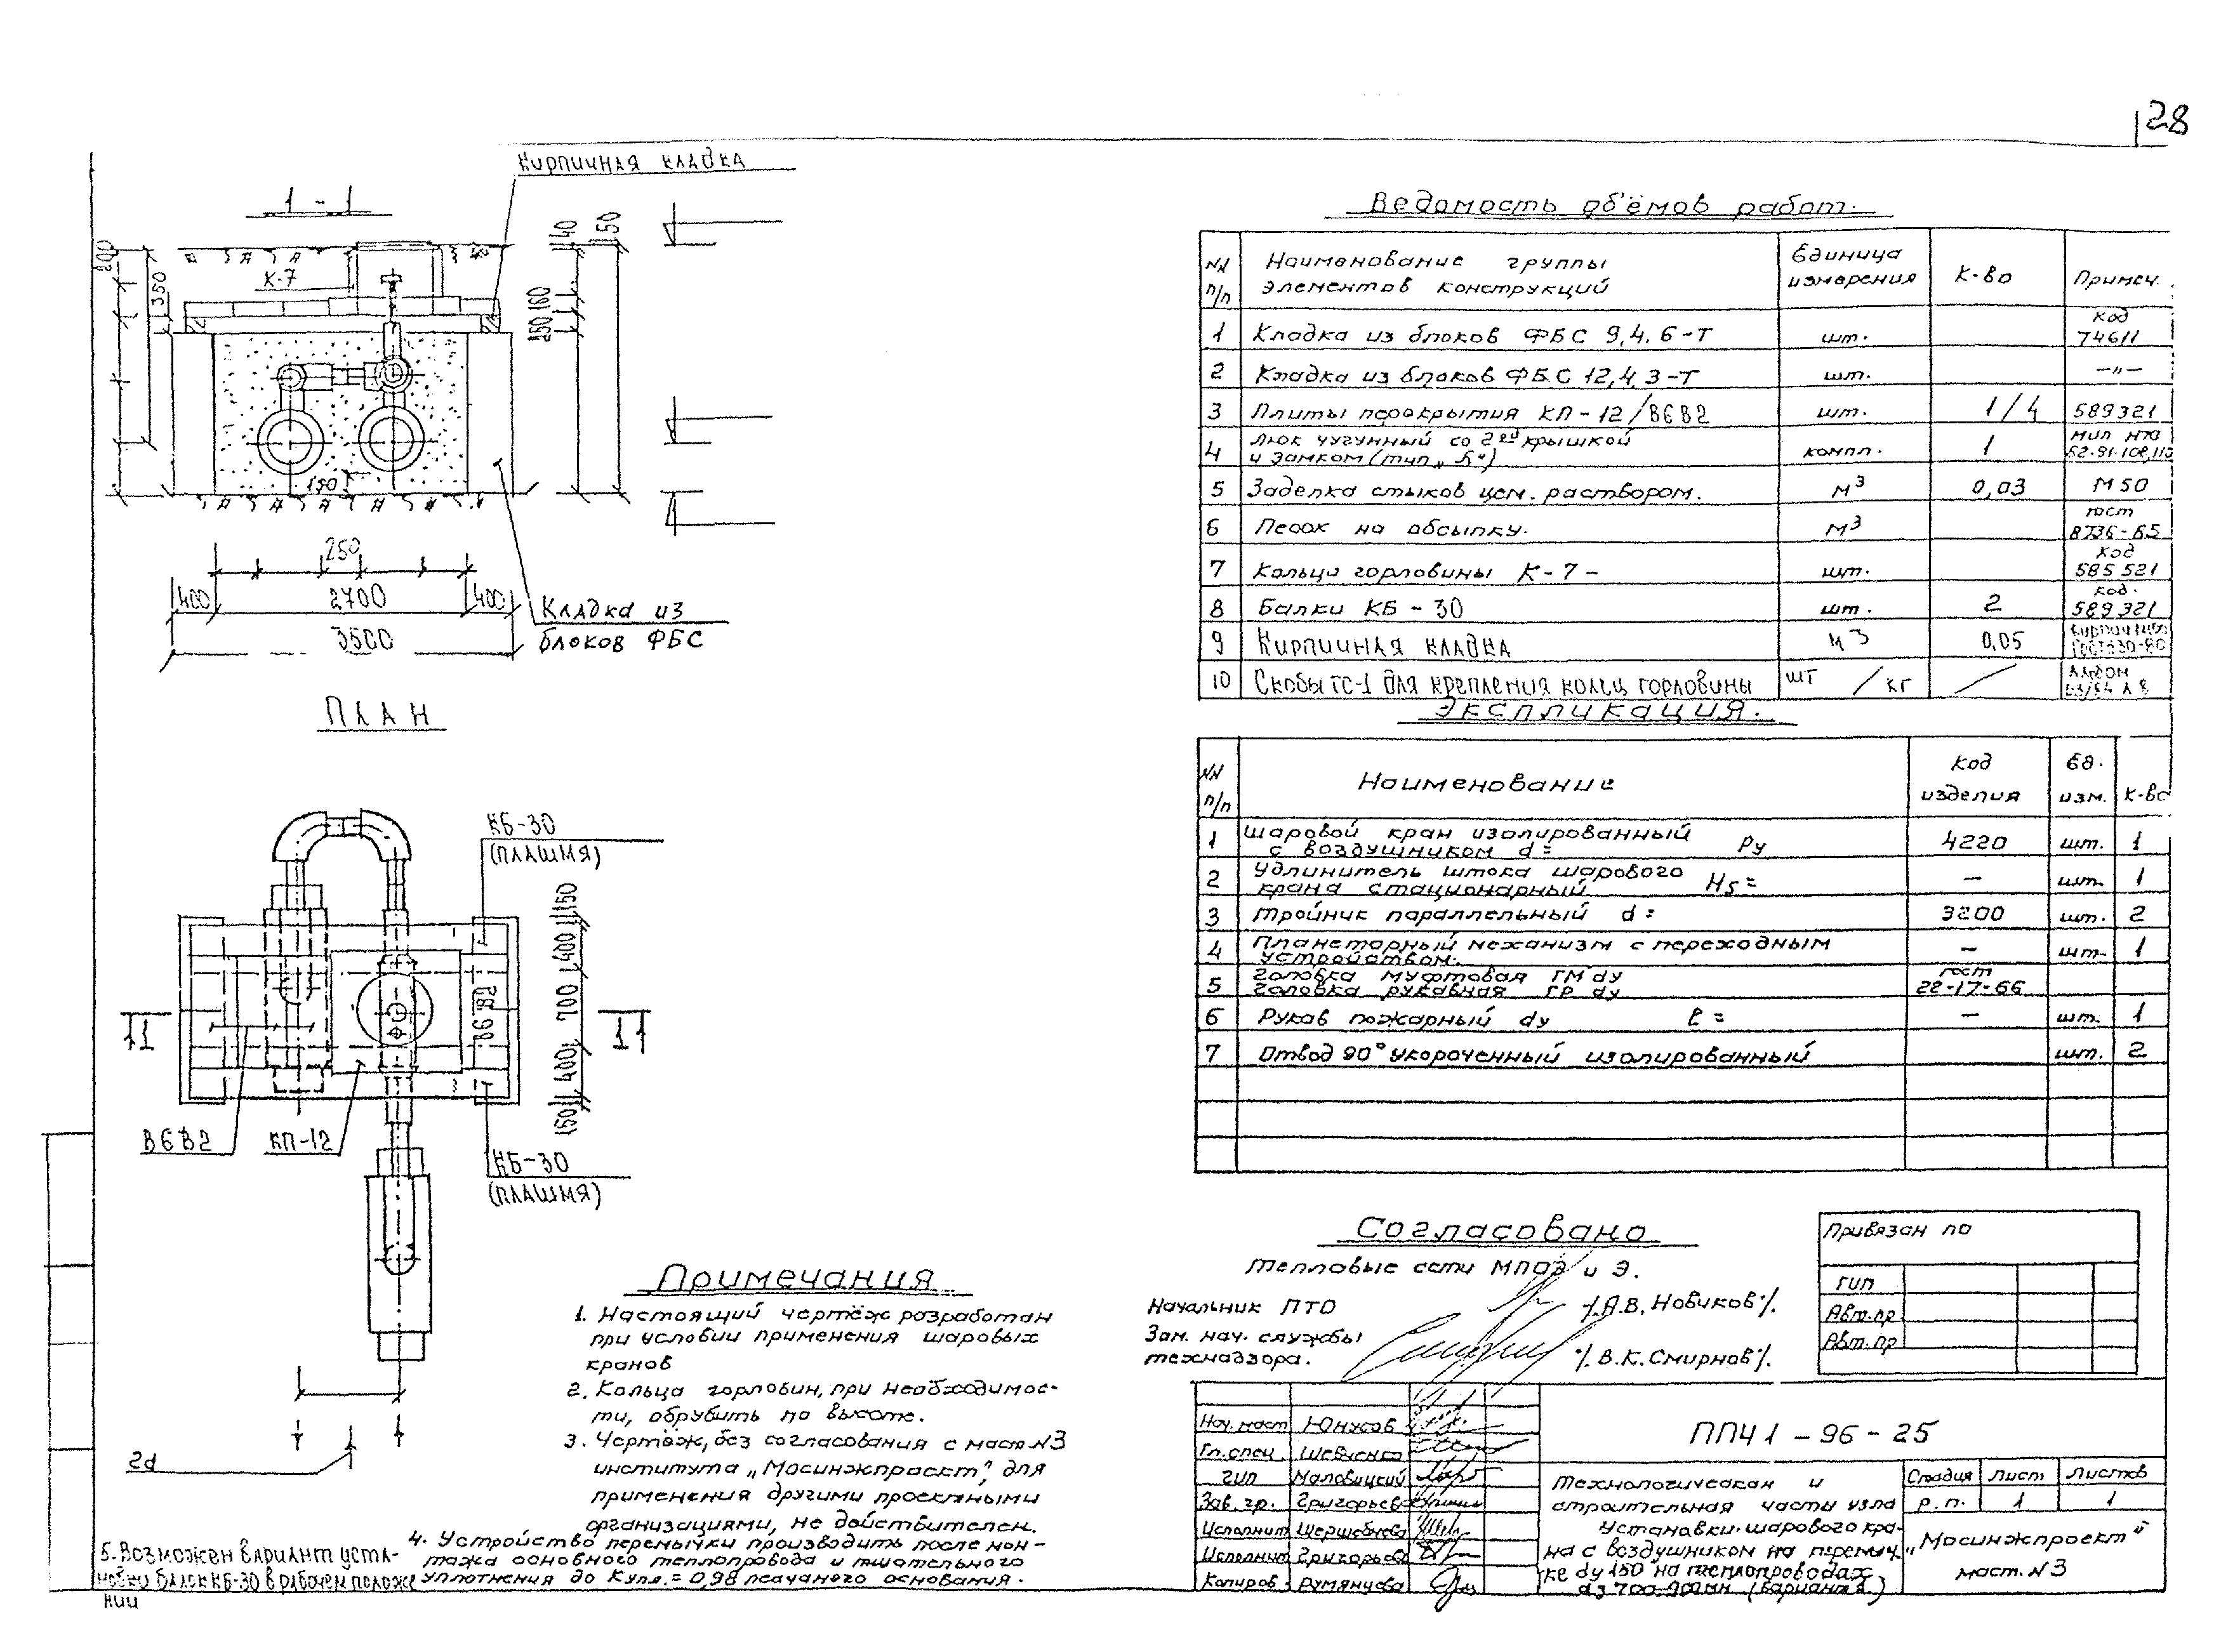 28
Кирпичная кладка
1 - 1
К-7
200
350
140
150
160
250
150
250
400
2700
400
3500
Кладка из
блоков ФБС
ПЛАН
КБ-30
(ПЛАШМЯ)
150
400
700
400
150
В6В2
1
1
В6В2
КП-12
КБ-30
(ПЛАШМЯ)
2d
Ведомость об'ёмов работ.
NN п/п
Наименование группы элементов конструкций
Единица измерения
К-во
Примеч.
1 Кладка из блоков ФБС 9.4.6-Т шт. Код 74611
2 Кладка из блоков ФБС 12.4.3-Т шт. —"—
3 Плиты перекрытия КП-12/В6В2 шт. 1/4 589321
4 Люк чугунный со 2ой крышкой и замком (тип „Б") компл. 1
5 Заделка стыков цем. раствором. м3 0,03 М50
6 Песок на обсыпку. м3 гост
7 Кольца горловины К-7- шт. Код 585521
8 Балки КБ-30 шт. 2 Код. 589321
9 Кирпичная кладка м3 0,05
10 Скобы ТС-1 для крепления колец горловины шт / кг / Альбом
Экспликация.
NN п/п
Наименование
Код изделия
Ед. изм.
К-во
1 Шаровой кран изолированный с воздушником d= Ру 4220 шт. 1
2 Удлинитель штока шарового крана стационарный Hs= — шт. 1
3 Тройник параллельный d= 3200 шт. 2
4 Планетарный механизм с переходным устройством. — шт. 1
5 Головка муфтовая ГМ dy Головка рукавная ГР dy гост 22-17-66
6 Рукав пожарный dy ℓ= — шт. 1
7 Отвод 90° укороченный изолированный шт. 2
Согласовано
Тепловые сети МПОЭ и Э.
Начальник ПТО /.А.В. Новиков/.
Зам. нач. службы
технадзора. /.В.К. Смирнов/.
Привязан по
ГИП
Авт.пр
Авт.пр
Примечания
1. Настоящий чертёж разработан
при условии применения шаровых
кранов
2. Кольца горловин, при необходимос-
ти, обрубить по высоте.
3. Чертёж, без согласования с маст N3
института „Мосинжпроект", для
применения другими проектными
организациями, не действителен.
4. Устройство перемычки производить после мон-
тажа основного теплопровода и тщательного
уплотнения до Купл.=0,98 песчаного основания.
5. Возможен вариант уста-
новки блок КБ-30 в рабочем положе
нии
Нач. маст Юнусов
Гл. спец. Шевченко
ГИП Маловицкий
Зав. гр. Григорьева
Исполнит
Исполнит Григорьева
Копиров. Румянцева
ППЧ 1 - 96 - 25
Технологическая и
строительная части узла
Установки шарового кра-
на с воздушником на перемыч
ке dy 150 на теплопроводах
Стадия Лист Листов
р.п. 1 1
„Мосинжпроект"
маст. N3